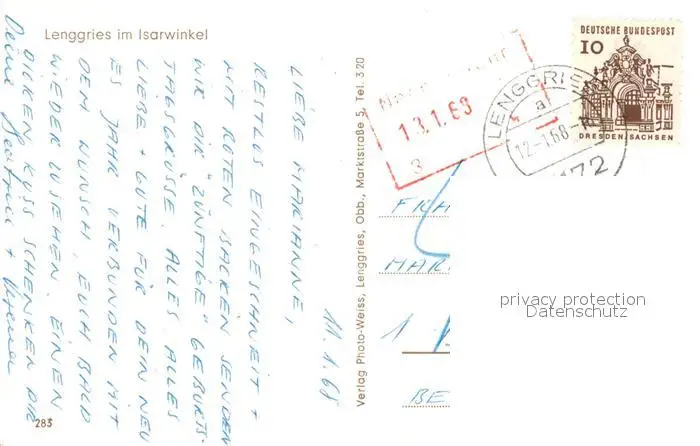 Lenggries im Isarwinkel
11.1.68
LIEBE MARIANNE,
RESTLOS EINGESCHNEIT +
MIT ROTEN BACKEN SENDEN
WIR DIR "ZÜNFTIGE" GEBURTS-
TAGSGRÜSSE. ALLES ALLES
LIEBE + GUTE FÜR DEIN NEU
ES JAHR VERBUNDEN MIT
DEM WUNSCH, EUCH BALD
WIEDER ZUSEHEN. EINEN
DICKEN KUSS SCHENKEN DIR
Deine
283
Verlag Photo-Weiss, Lenggries, Obb., Marktstraße 5, Tel. 320
13.1.68
3
LENGGRIES
a
12.-1.68
172
DEUTSCHE BUNDESPOST
10
DRESDEN/SACHSEN
FRA
MAR
1
BE
privacy protection
Datenschutz